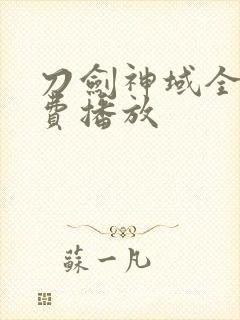 刀劍神域全
費播放
蘇一凡